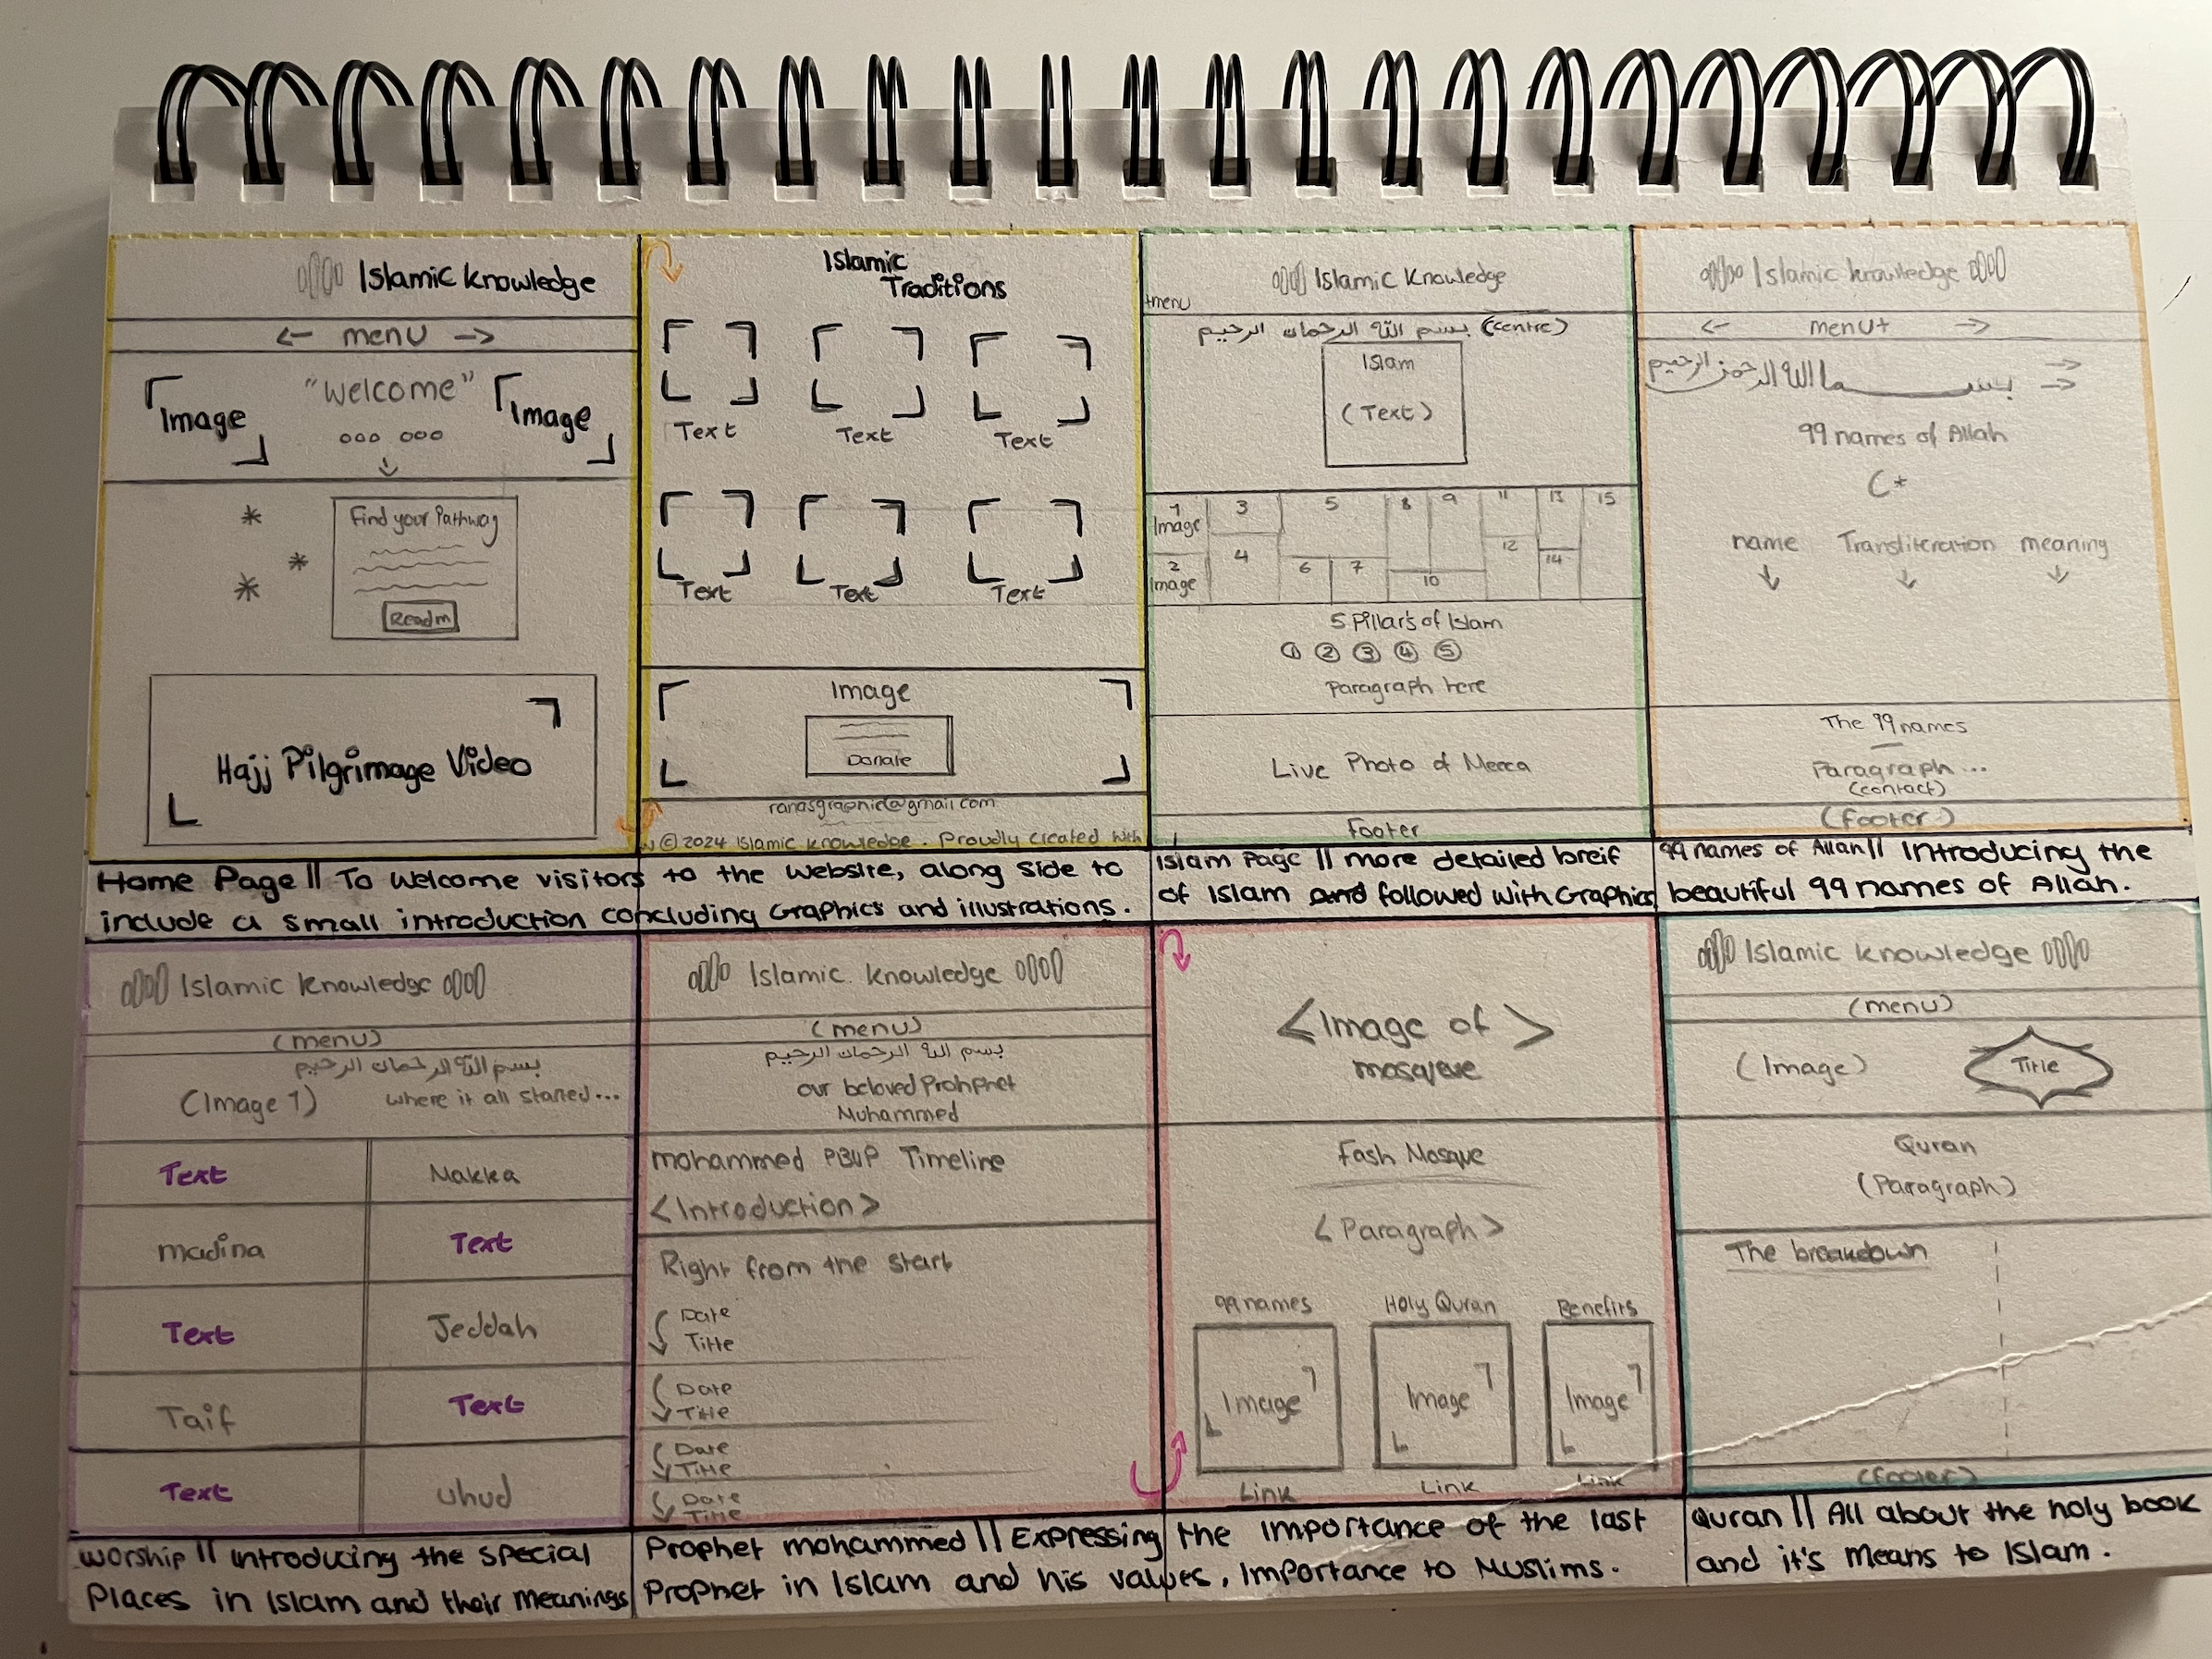 Islamic Knowledge
← menu →
Image
"Welcome"
Image
Find your Pathway
Readm
Hajj Pilgrimage Video
Islamic
Traditions
Text
Text
Text
Text
Text
Text
Image
Donate
ranasgraphic@gmail.com
© 2024 Islamic knowledge. Proudly Created with
Home Page || To Welcome visitors to the website, along side to
include a small introduction concluding Graphics and illustrations.
Islamic Knowledge
+menu
بسم الله الرحمان الرحيم (centre)
Islam
(Text)
1 3 5 8 9 11 13 15
Image
4 12
2 6 7 14
Image 10
5 Pillar's of Islam
① ② ③ ④ ⑤
Paragraph here
Live Photo of Mecca
Footer
Islam Page || more detailed breif
of Islam and followed with Graphics
Islamic knowledge
← menu+ →
بسم الله الرحمن الرحيم
99 names of Allah
name Transliteration meaning
The 99 names
Paragraph...
(contact)
(footer)
99 names of Allah || Introducing the
beautiful 99 names of Allah.
Islamic Knowledge
(menu)
بسم الله الرحمان الرحيم
(Image 1) where it all started...
Text Makka
madina Text
Text Jeddah
Taif Text
Text uhud
Worship || introducing the special
Places in Islam and their meanings
Islamic knowledge
(menu)
بسم الله الرحمان الرحيم
our beloved Prohphet
Muhammed
mohammed PBUP Timeline
<Introduction>
Right from the start
Date
Title
Date
Title
Date
Title
Date
Title
<Image of>
mosqeue
Fash Mosque
<Paragraph>
99 names Holy Quran Benefits
Image Image Image
Link Link Link
Prophet mohammed || Expressing the importance of the last
Prophet in Islam and his values, Importance to Muslims.
Islamic knowledge
(menu)
(Image) Title
Quran
(Paragraph)
The breakdown
(footer)
Quran || All about the holy book
and it's means to Islam.